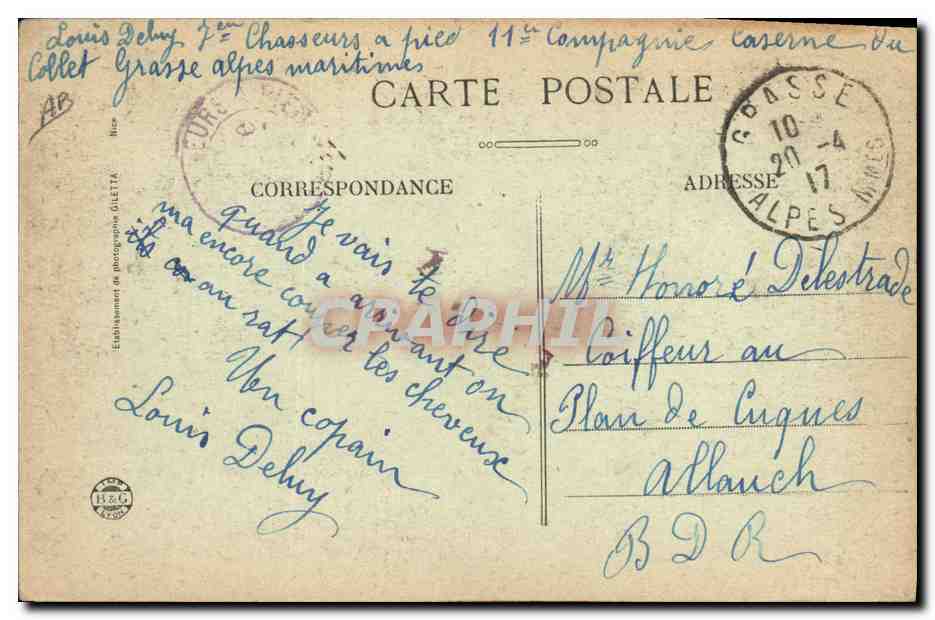 Louis Deluy 7em Chasseurs a pied 11em Compagnie Caserne du
Collet Grasse alpes maritimes
AB
CARTE POSTALE
GRASSE
10
20 -4
17
ALPES MMES
CORRESPONDANCE
ADRESSE
Je vais te dire
quand a arrivant on
ma encore couper les cheveux
au rat
Un copain
Louis Deluy
Mr Honoré Delestrade
Coiffeur au
Plan de Cuques
Allauch
B D R
Etablissement de photographie GILETTA Nice
IMP
B&G
LYON
CPAPHIL